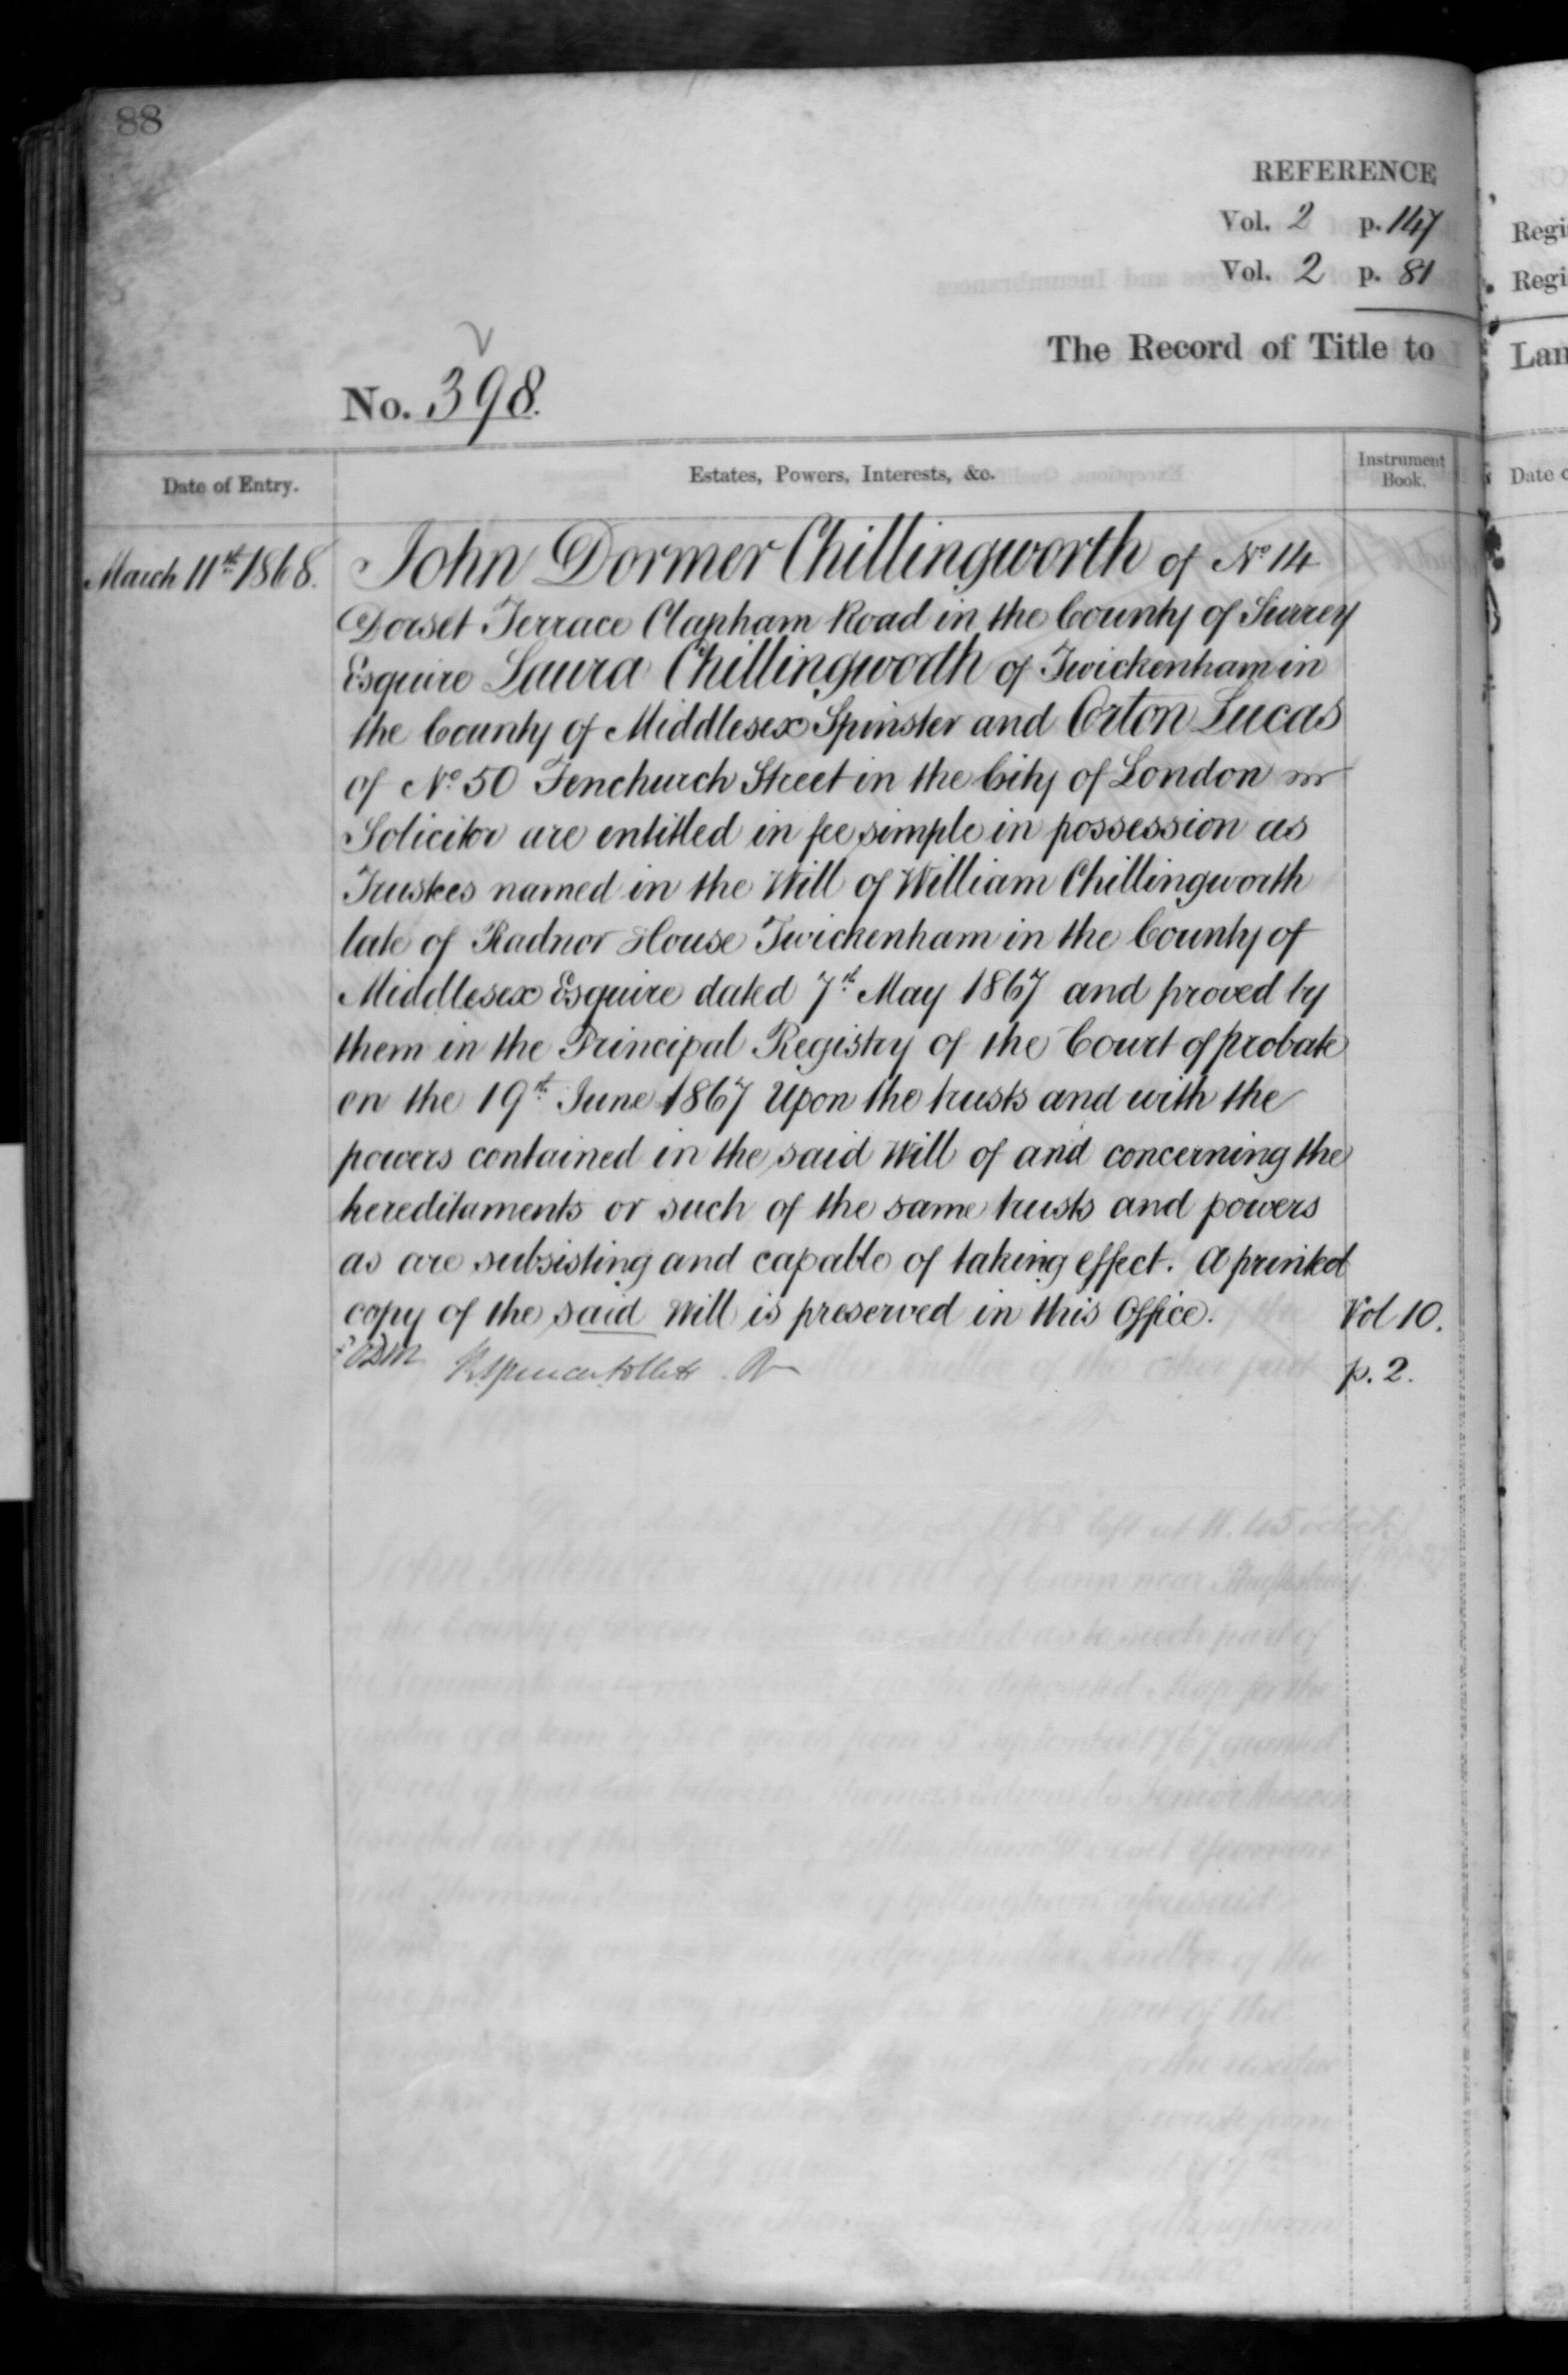 88
REFERENCE
Vol. 2 p. 147
Vol. 2 p. 81
The Record of Title to
No. 398.
Date of Entry.
Estates, Powers, Interests, &c.
Instrument
Book.
March 11th 1868.
John Dormer Chillingworth of No 14
Dorset Terrace Clapham Road in the County of Surrey
Esquire Laura Chillingworth of Twickenham in
the County of Middlesex Spinster and Orton Lucas
of No 50 Fenchurch Street in the City of London
Solicitor are entitled in fee simple in possession as
Trustees named in the Will of William Chillingworth
late of Radnor House Twickenham in the County of
Middlesex Esquire dated 7th May 1867 and proved by
them in the Principal Registry of the Court of probate
on the 19th June 1867 Upon the trusts and with the
powers contained in the said Will of and concerning the
hereditaments or such of the same trusts and powers
as are subsisting and capable of taking effect. A printed
copy of the said Will is preserved in this Office.
Vol 10.
p. 2.
Regi
Regi
Lan
Date